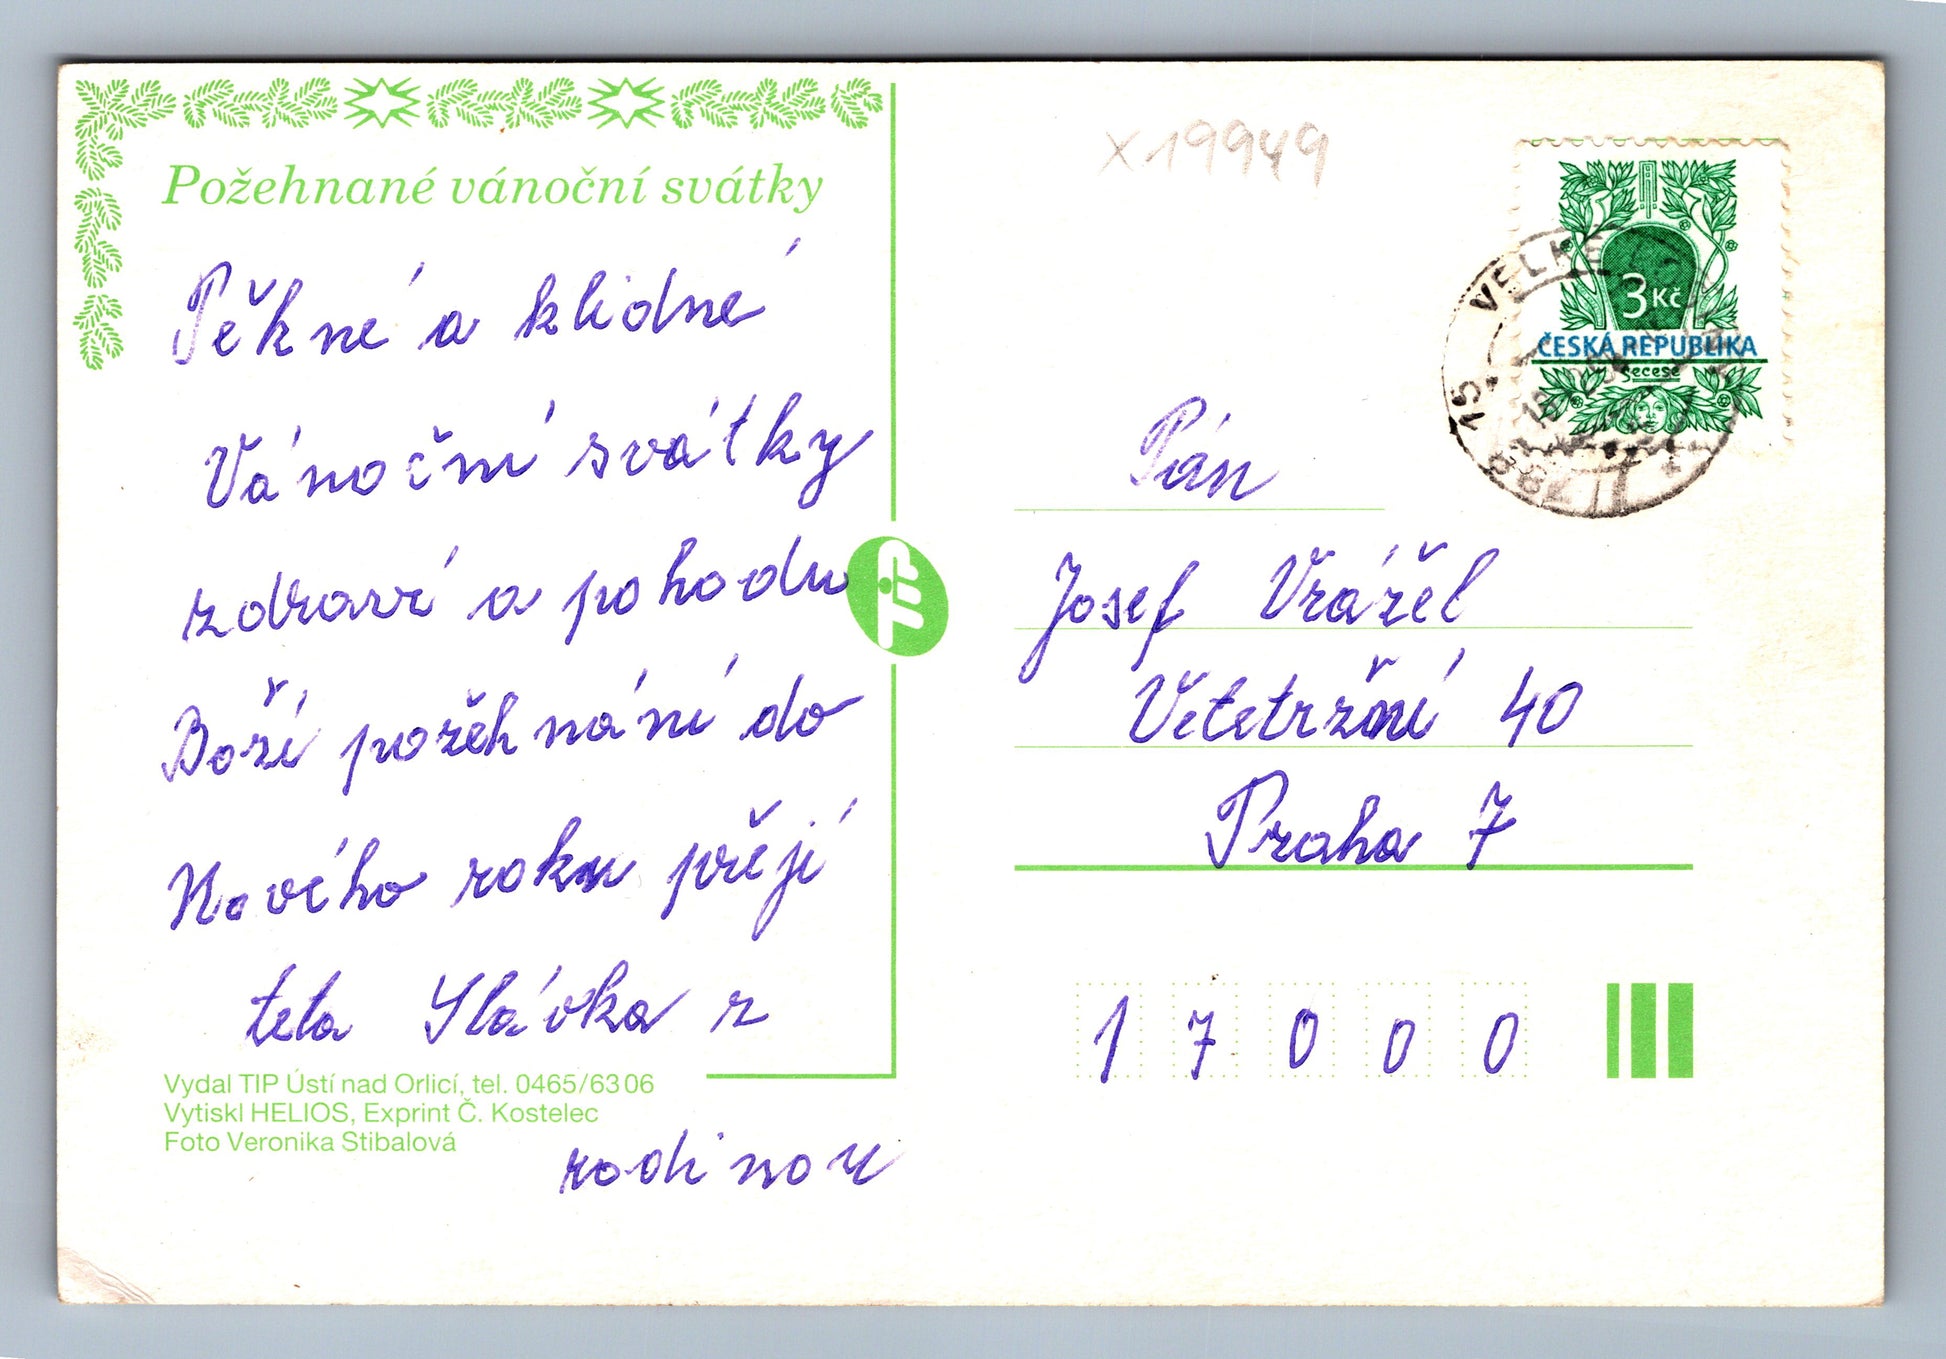 Požehnané vánoční svátky
Pěkné a klidné
Vánoční svátky
zdraví a pohodu
Boží požehnání do
Nového roku přejí
teta Slávka z
Vydal TIP Ústí nad Orlicí, tel. 0465/6306
Vytiskl HELIOS, Exprint Č. Kostelec
Foto Veronika Stibalová
rodinou
x 19949
3 Kč
ČESKÁ REPUBLIKA
Secese
VELKÉ
Pán
Josef Vrážel
Veletržní 40
Praha 7
1 7 0 0 0